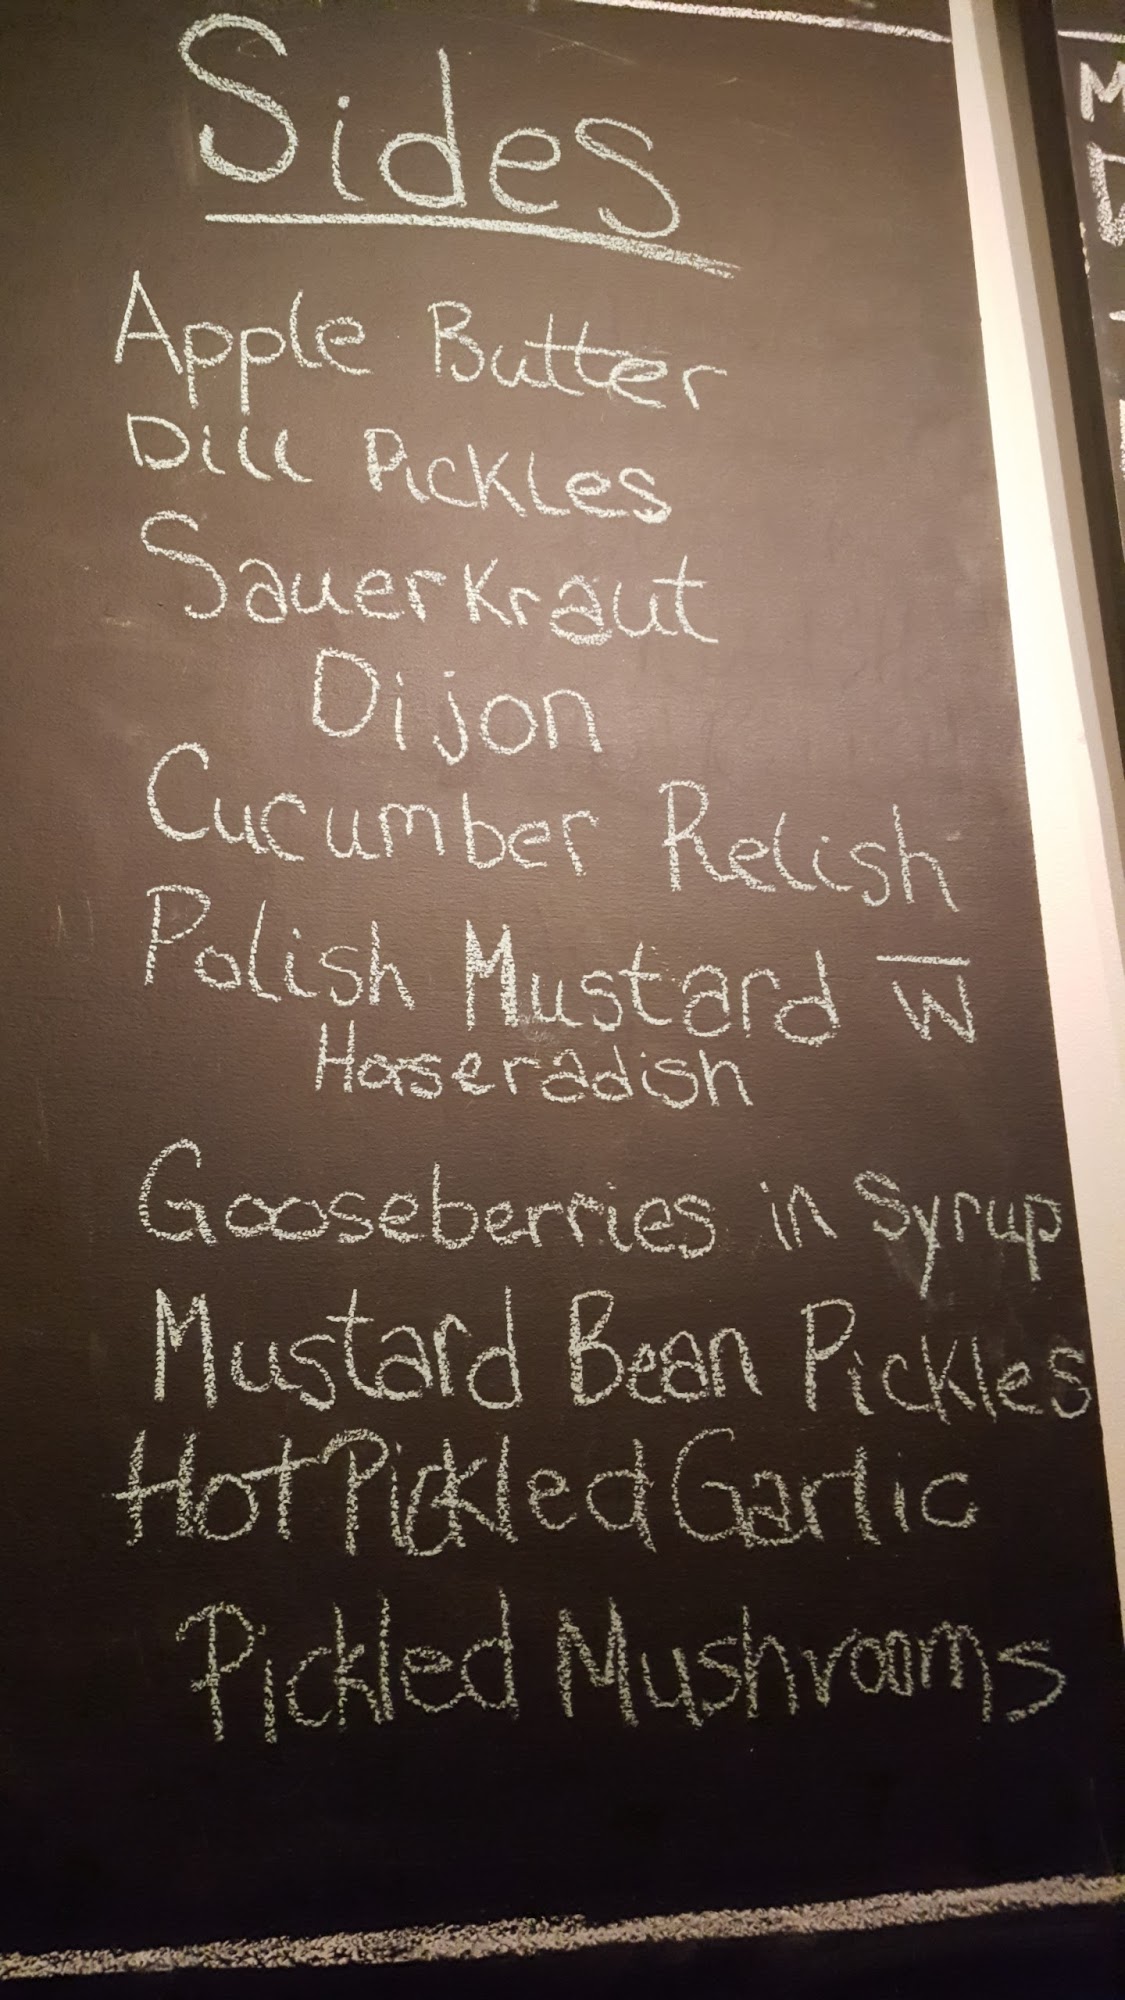 Sides
Apple Butter
Dill Pickles
Sauerkraut
Dijon
Cucumber Relish
Polish Mustard W̅
Horseradish
Gooseberries in Syrup
Mustard Bean Pickles
Hot Pickled Garlic
Pickled Mushrooms